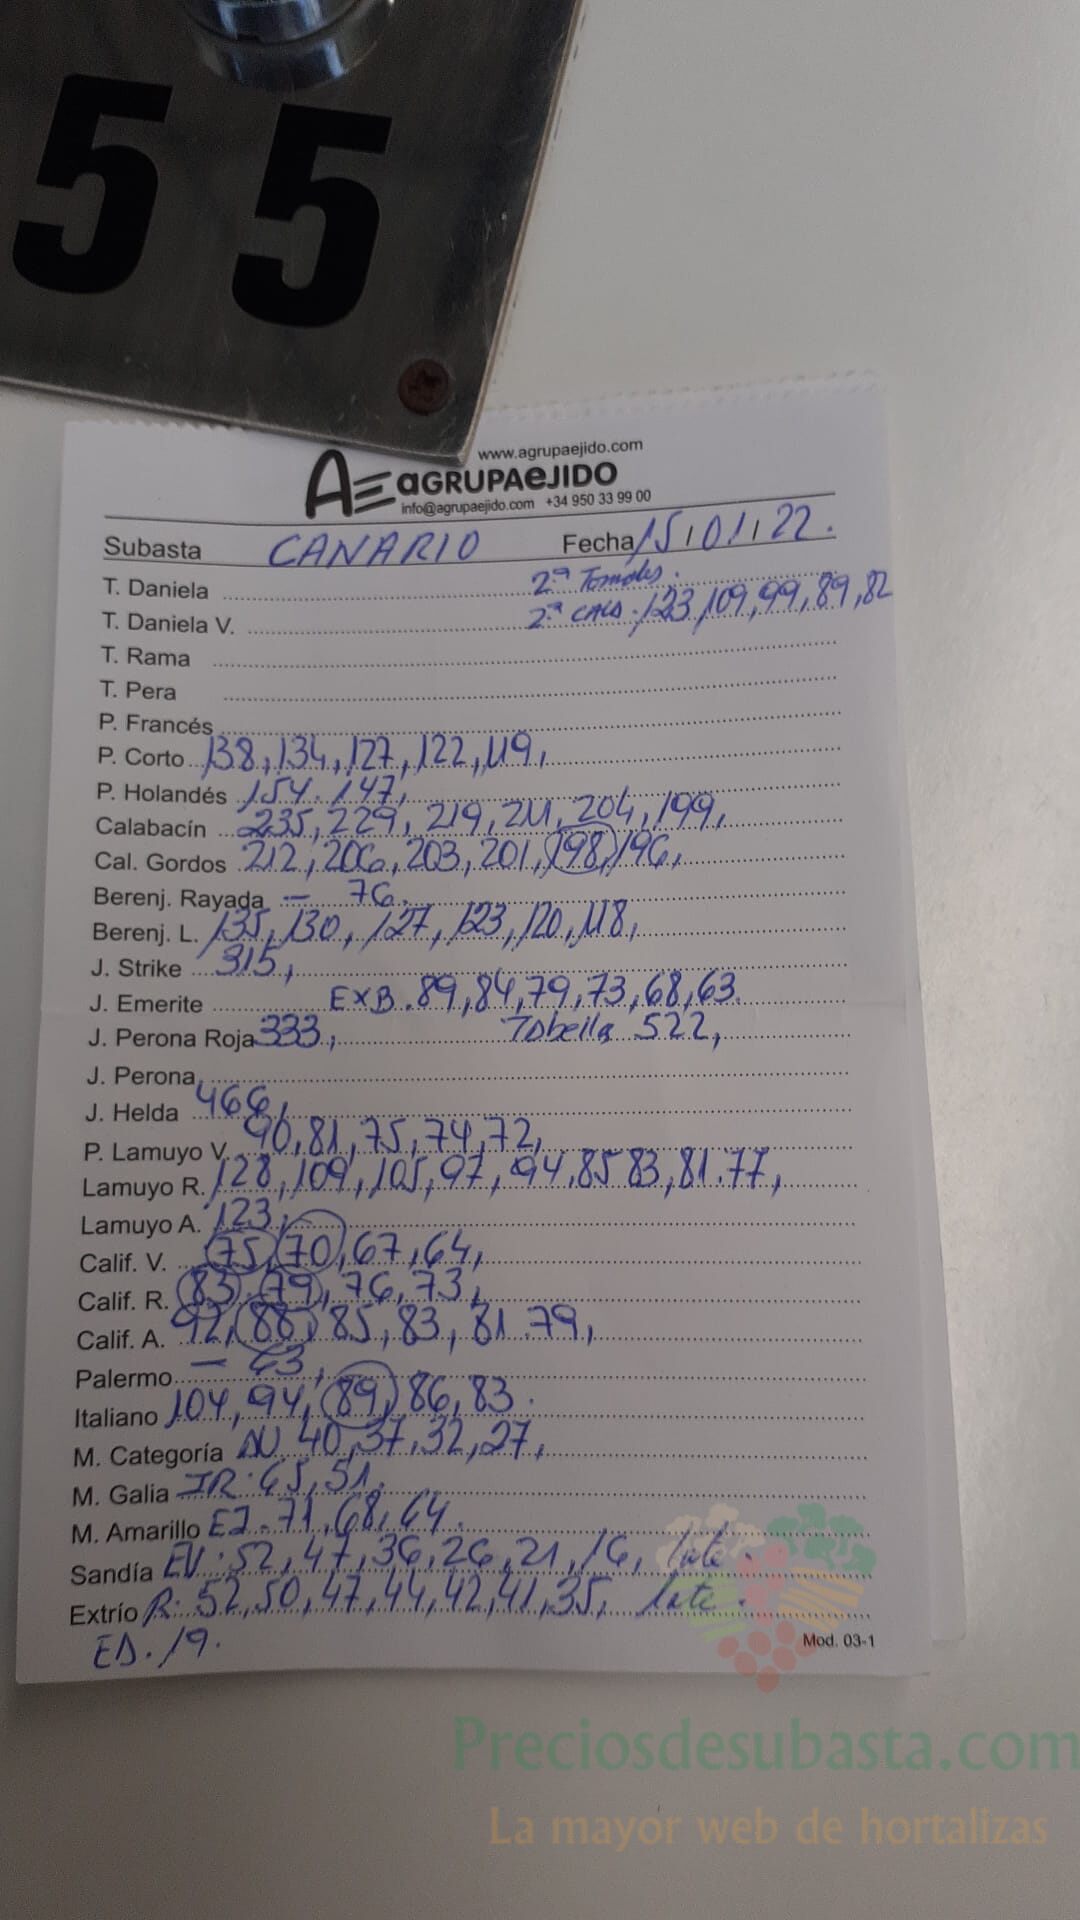 55
www.agrupaejido.com
AE aGRUPAeJIDO
info@agrupaejido.com +34 950 33 99 00
Subasta CANARIO Fecha 15/01/22.
T. Daniela 2ª Tomates.
T. Daniela V. 2ª CALA. 123, 109, 99, 89, 82
T. Rama
T. Pera
P. Francés
P. Corto 138, 134, 127, 122, 119,
P. Holandés 154. 147,
Calabacín 235, 229, 219, 211, 204, 199,
Cal. Gordos 212, 206, 203, 201, 198, 196,
Berenj. Rayada — 76.
Berenj. L. 135, 130, 127, 123, 120, 118,
J. Strike 315,
J. Emerite EXB. 89, 84, 79, 73, 68, 63.
J. Perona Roja 333, Tabella 522,
J. Perona
J. Helda 466,
P. Lamuyo V. 90, 81, 75, 74, 72,
Lamuyo R. 128, 109, 105, 97, 94, 85 83, 81. 77,
Lamuyo A. 123,
Calif. V. 75, 70, 67, 64,
Calif. R. 83, 79, 76, 73,
Calif. A. 92, 88, 85, 83, 81. 79,
Palermo — 63,
Italiano 104, 94, 89, 86, 83.
M. Categoría 40, 37, 32, 27,
M. Galia IR. 65, 51.
M. Amarillo EJ. 71, 68, 64.
Sandía EV. 52, 47, 36, 26, 21, 16, lote.
Extrío R. 52, 50, 47, 44, 42, 41, 35, lote.
ED. 19.
Mod. 03-1
Preciosdesubasta.com
La mayor web de hortalizas